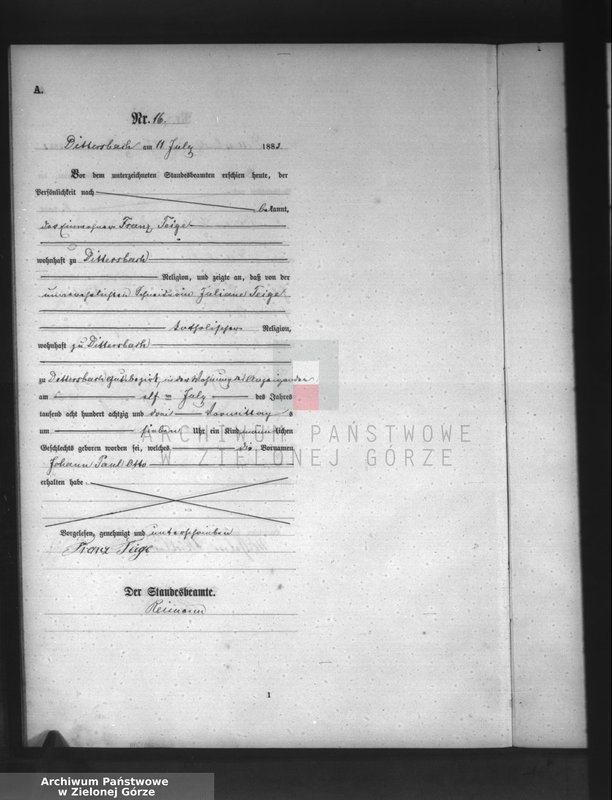 A.
Nr. 16.
Dittersbach am 11 July 1883.
Vor dem unterzeichneten Standesbeamten erschien heute, der
Persönlichkeit nach
bekannt,
der Einwohner Franz Teige
wohnhaft zu Dittersbach
Religion, und zeigte an, daß von der
unverehelichten Juliane Teige
katholischer Religion,
wohnhaft zu Dittersbach
zu Dittersbach Gutsbezirk, in der Wohnung des Anzeigenden
am elf ten July des Jahres
tausend acht hundert achtzig und drei Vormittag s
um sieben Uhr ein Kind männlichen
Geschlechts geboren worden sei, welches die Vornamen
Johann Paul Otto
erhalten habe.
Vorgelesen, genehmigt und unterschrieben
Franz Teige
Der Standesbeamte.
Reimann
1
ARCHIWUM PAŃSTWOWE
W ZIELONEJ GÓRZE
Archiwum Państwowe
w Zielonej Górze